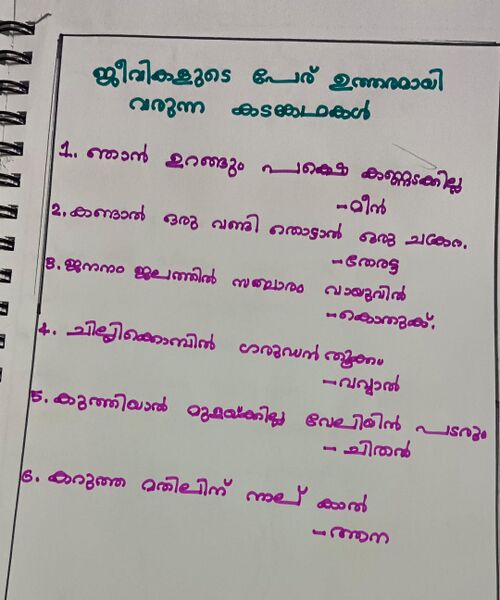 ജീവികളുടെ പേര് ഉത്തരമായി
വരുന്ന കടങ്കഥകൾ
1. ഞാൻ ഉറങ്ങും പക്ഷെ കണ്ണടക്കില്ല
-മീൻ
2. കണ്ടാൽ ഒരു വണ്ടി തൊട്ടാൽ ഒരു ചക്രം.
-തേരട്ട
3. ജനനം ജലത്തിൽ സഞ്ചാരം വായുവിൽ
-കൊതുക്.
4. ചില്ലിക്കൊമ്പിൽ ഗരുഡൻ തൂക്കം
-വവ്വാൽ
5. കുത്തിയാൽ മുളയ്ക്കില്ല വേലിയിൻ പടരും
- ചിതൽ
6. കറുത്ത മതിലിന് നാല് കാൽ
-ആന